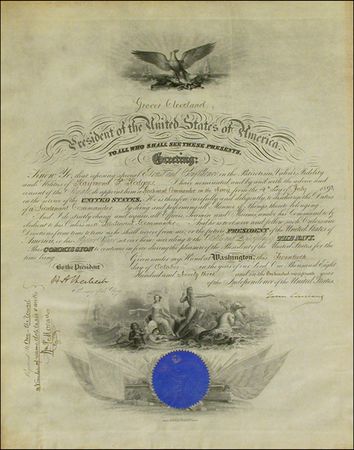 Grover Cleveland,
President of the United States of America.
TO ALL WHO SHALL SEE THESE PRESENTS,
Greeting:
Know Ye, that reposing special Trust and Confidence in the Patriotism, Valour, Fidelity
and Abilities of Raymond P. Rodgers I have nominated and by and with the advice and
consent of the Senate do appoint him a Lieutenant Commander in the Navy from the 4th day of July 1893
in the service of the UNITED STATES. He is therefore carefully and diligently to discharge the Duties
of a Lieutenant Commander by doing and performing all Manner of Things thereto belonging.
And I do strictly charge and require all Officers, Seamen and Marines under his Command to be
obedient to his Orders as a Lieutenant Commander And he is to observe and follow such Orders and
Directions from time to time as he shall receive from me, or the future PRESIDENT of the United States of
America, or his Superior Officer set over him, according to the Rules and Discipline of THE NAVY.
This COMMISSION to continue in force during the pleasure of the President of the United States for the
time being.
Given under my Hand at Washington, this Twentieth
day of October in the year of our Lord One Thousand Eight
Hundred and Ninety three and in the One Hundred and
of the Independence of the United States.
By the President
Grover Cleveland
H A Herbert
Secretary of the Navy